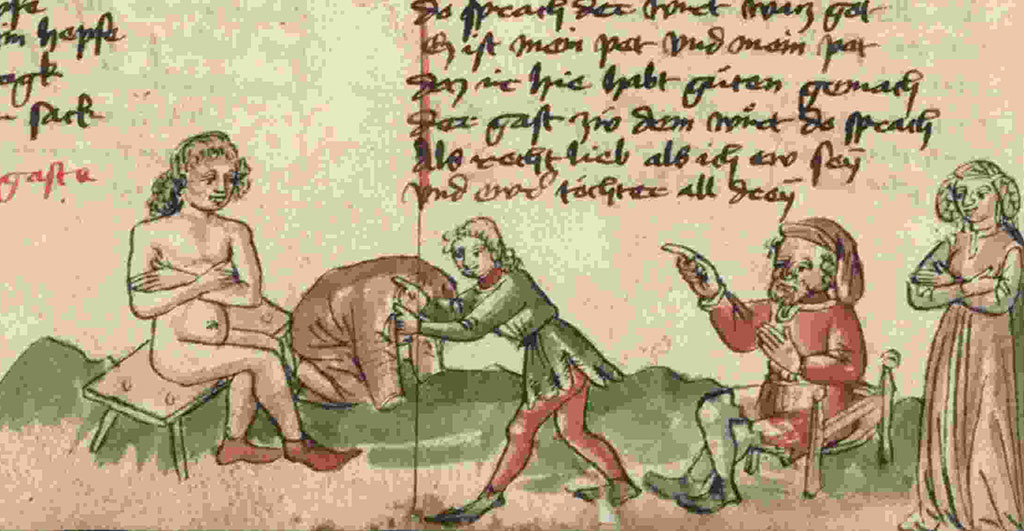 hepfe
sack
gast
do sprach der wirt waz got
Ez ist mein pet vnd mein pot
daz ir hie habt guten gemach
der gast zw dem wirt do sprach
Als recht lieb als ich ew sey
vnd ewr tochter all drey